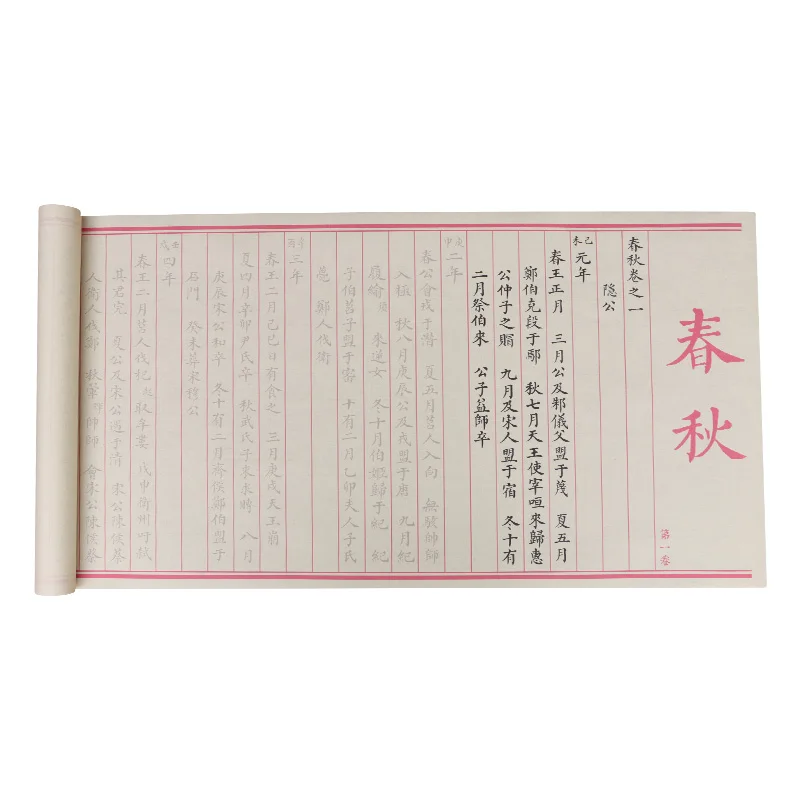 春秋
第一卷
春秋卷之一
隱公
己未 元年
春王正月 三月公及邾儀父盟于蔑 夏五月
鄭伯克段于鄢 秋七月天王使宰咺來歸惠
公仲子之賵 九月及宋人盟于宿 冬十有
二月祭伯來 公子益師卒
庚申 二年
春公會戎于潛 夏五月莒人入向 無駭帥師
入極 秋八月庚辰公及戎盟于唐 九月紀
履緰 來逆女 冬十月伯姬歸于紀 紀
子伯莒子盟于密 十有二月乙卯夫人子氏
薨 鄭人伐衛
辛酉 三年
春王二月己巳日有食之 三月庚戌天王崩
夏四月辛卯尹氏卒 秋武氏子來求賻 八月
庚辰宋公和卒 冬十有二月齊侯鄭伯盟于
石門 癸未葬宋穆公
壬戌 四年
春王二月莒人伐杞 取牟婁 戊申衛州吁弒
其君完 夏公及宋公遇于清 宋公陳侯蔡
人衛人伐鄭 秋翬 帥師 會宋公陳侯蔡